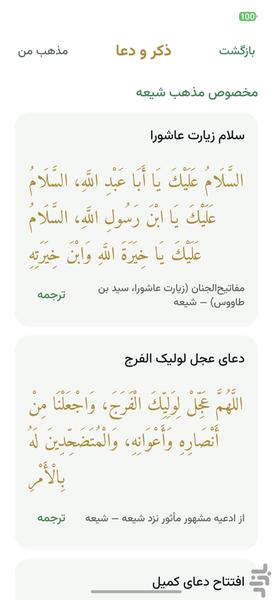 100
بازگشت
ذکر و دعا
مذهب من
مخصوص مذهب شیعه
سلام زیارت عاشورا
السَّلَامُ عَلَيْكَ يَا أَبَا عَبْدِ اللَّهِ، السَّلَامُ
عَلَيْكَ يَا ابْنَ رَسُولِ اللَّهِ، السَّلَامُ
عَلَيْكَ يَا خِيَرَةَ اللَّهِ وَابْنَ خِيَرَتِهِ
مفاتیح‌الجنان (زیارت عاشورا، سید بن
طاووس) – شیعه
ترجمه
دعای عجل لولیک الفرج
اللَّهُمَّ عَجِّلْ لِوَلِيِّكَ الْفَرَجَ، وَاجْعَلْنَا مِنْ
أَنْصَارِهِ وَأَعْوَانِهِ، وَالْمُتَضَحِّدِينَ لَهُ
بِالْأَمْرِ
از ادعیه مشهور مأثور نزد شیعه – شیعه
ترجمه
افتتاح دعای کمیل
بازار